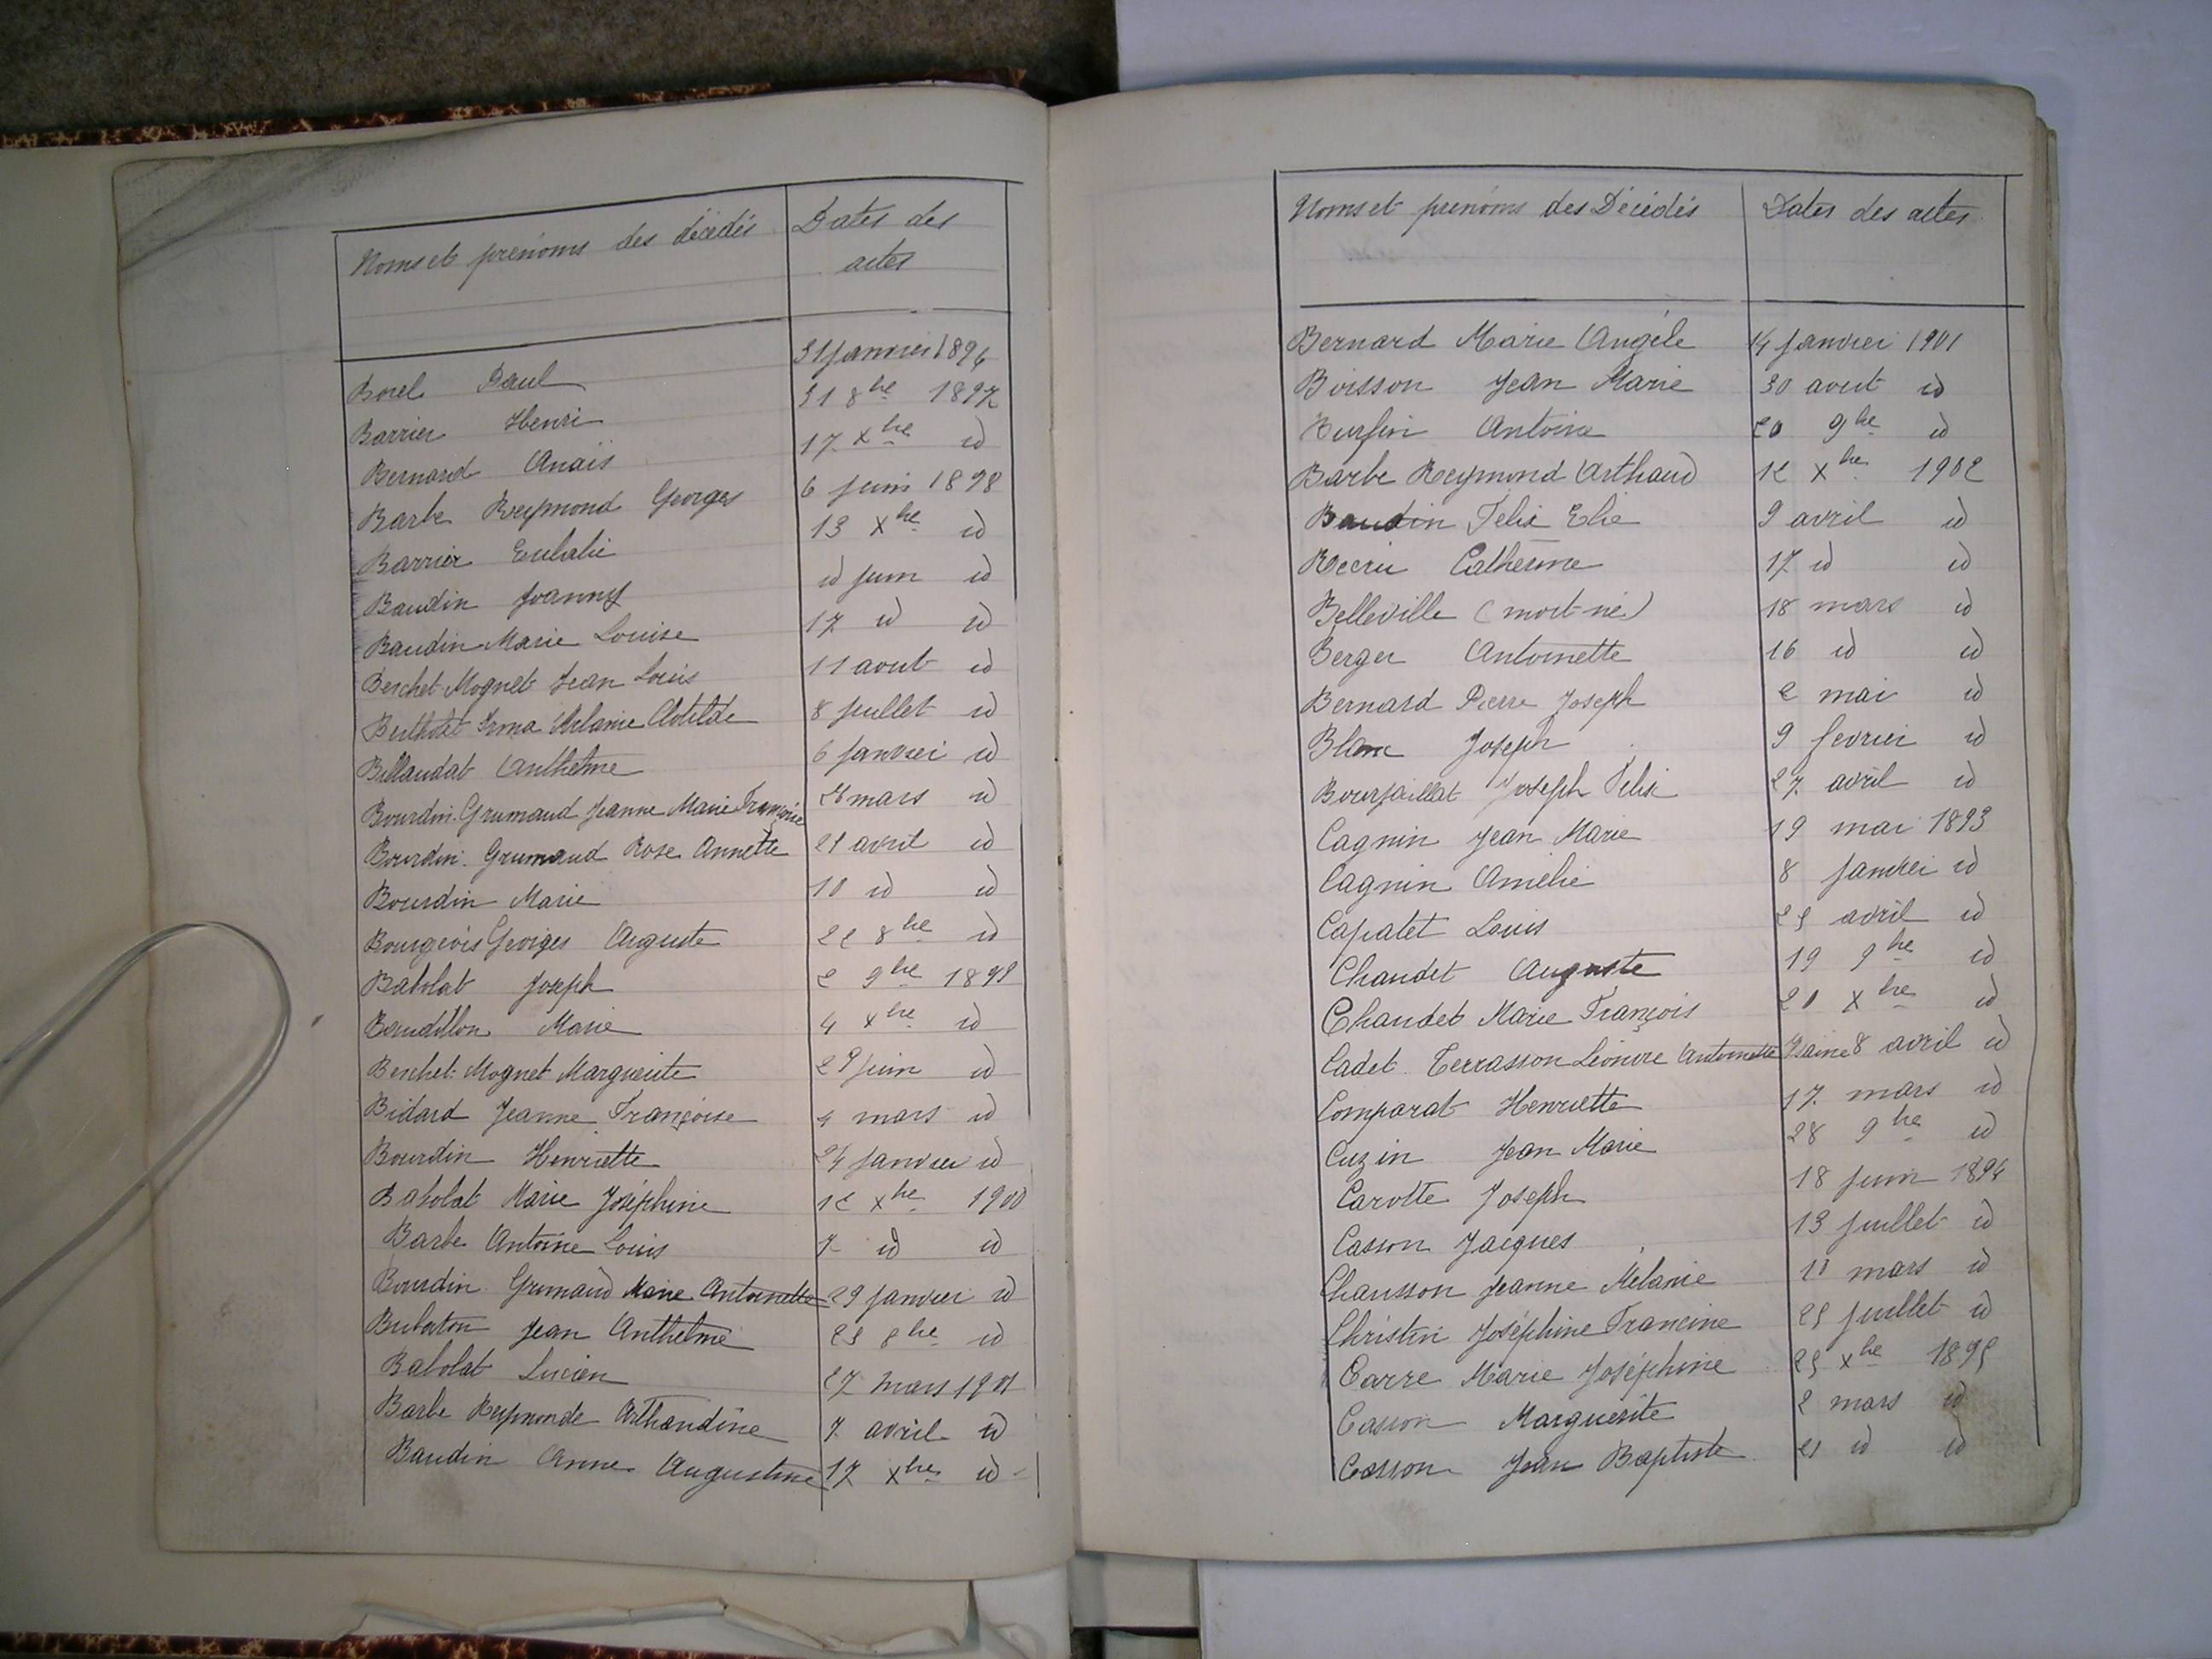 Noms et prénoms des décédés Dates des
actes
Borel Paul 31 janvier 1896
Barrier Henri 31 8bre 1897
Bernard Anaïs 17 Xbre id
Barbe Reymond Georges 6 juin 1898
Barrier Eulalie 13 Xbre id
Baudin Joanny id juin id
Baudin Marie Louise 17 id id
Berchet-Mognet Jean Louis 11 aout id
Bertholet Irma Mélanie Clotilde 8 juillet id
Billaudat Anthelme 6 janvier id
Bourdin-Grumaud Jeanne Marie Françoise mars id
Bourdin-Grumaud Rose Annette 21 avril id
Bourdin Marie 10 id id
Bourgeois Georges Auguste 22 8bre id
Babolat Joseph 2 9bre 1899
Baudillon Marie 4 Xbre id
Berchet-Mognet Marguerite 29 juin id
Bidard Jeanne Françoise 4 mars id
Bourdin Henriette 24 janvier id
Babolat Marie Joséphine 12 Xbre 1900
Barbe Antoine Louis 7 id id
Bourdin Grumaud Marie Antoinette 29 janvier id
Buberton Jean Anthelme 23 8bre id
Babolat Lucien 27 mars 1901
Barbe Reymonde Arthaudine 7 avril id
Baudin Anne Augustine 17 Xbre id
Noms et prénoms des Décédés Dates des actes
Bernard Marie Angèle 14 janvier 1901
Boisson Jean Marie 30 aout id
Burfin Antoine 20 9bre id
Barbe Reymond Arthaud 12 Xbre 1902
Baudin Felix Elie 9 avril id
Catherine 17 id id
Belleville (mort-né) 18 mars id
Berger Antoinette 16 id id
Bernard Pierre Joseph 2 mai id
Blanc Joseph 9 fevrier id
Bourjaillat Joseph Felix 27 avril id
Cagnin Jean Marie 19 mai 1893
Cagnin Amélie 8 janvier id
Capatet Louis 25 avril id
Chaudet Auguste 19 9bre id
Chaudet Marie François 20 Xbre id
Cadet-Terrasson Léonore Antoinette Isaine 8 avril id
Comparat Henriette 17 mars id
Cuzin Jean Marie 28 9bre id
Carotte Joseph 18 juin 1894
Casson Jacques 13 juillet id
Chausson Jeanne Mélanie 10 mars id
Christin Joséphine Francine 25 juillet id
Carre Marie Joséphine 25 Xbre 1895
Casson Marguerite 2 mars id
Casson Jean Baptiste 21 id id